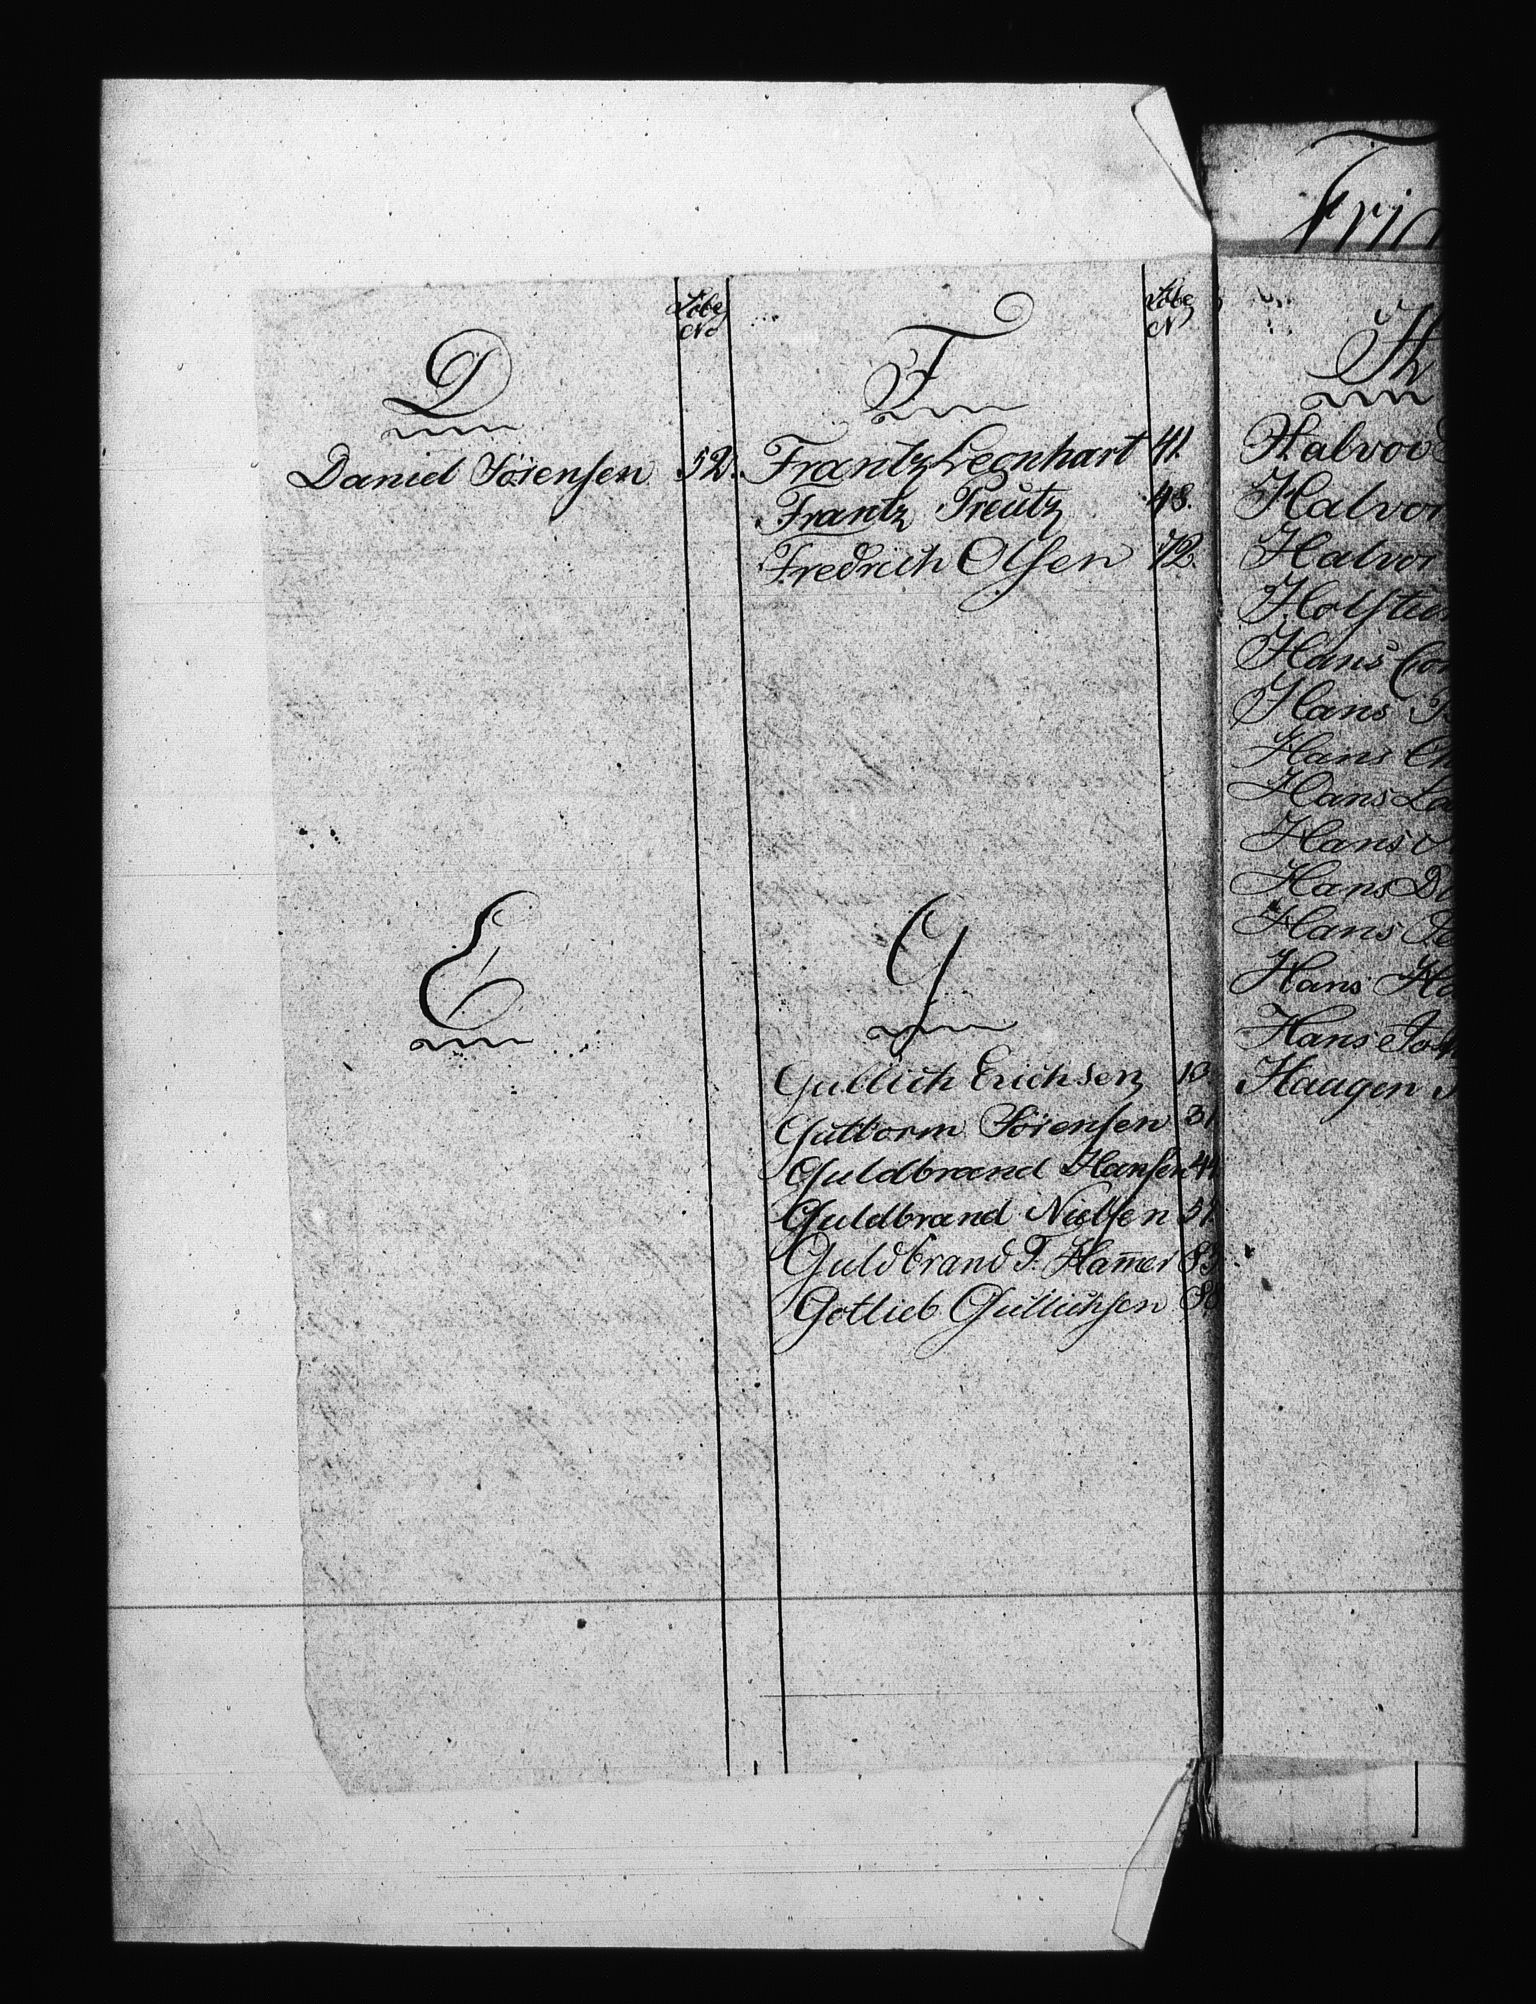 Løbe
No
D
Daniel Sørensen 52.
E
Løbe
N
F
Frantz Leonhart 41.
Frantz Preutz 48.
Fredrich Olsen 72.
G
Gullich Erichsen 13
Guttorm Sørensen 31
Guldbrand Hansen 44
Guldbrand Nielsen 51
Guldbrand T. Ham̄er 83.
Gotlieb Gullichsen
H
Halvor
Halvor
Halvor
Holstein
Hans
Hans
Hans
Hans
Hans
Hans
Hans
Hans
Hans
Haugen